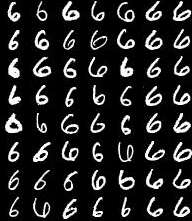 6 6 6 6 6 6 6
6 6 6 6 6 6 6
6 6 6 6 6 6 6
6 6 6 6 6 6 6
6 6 6 6 6 6 6
6 6 6 6 6 6 6
6 6 6 6 6 6 6
6 6 6 6 6 6 6